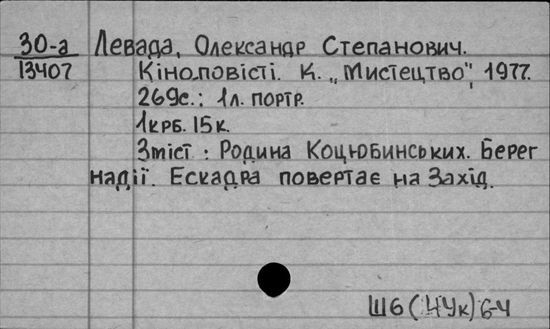 30-а Левада, Олександр Степанович.
13407 Кіноповісті. К. „Мистецтво", 1977.
269с.: 1л. портр.
1крб. 15к.
Зміст: Родина Коцюбинських. Берег
надії. Ескадра повертає на Захід.
Ш6(4Ук)6-4